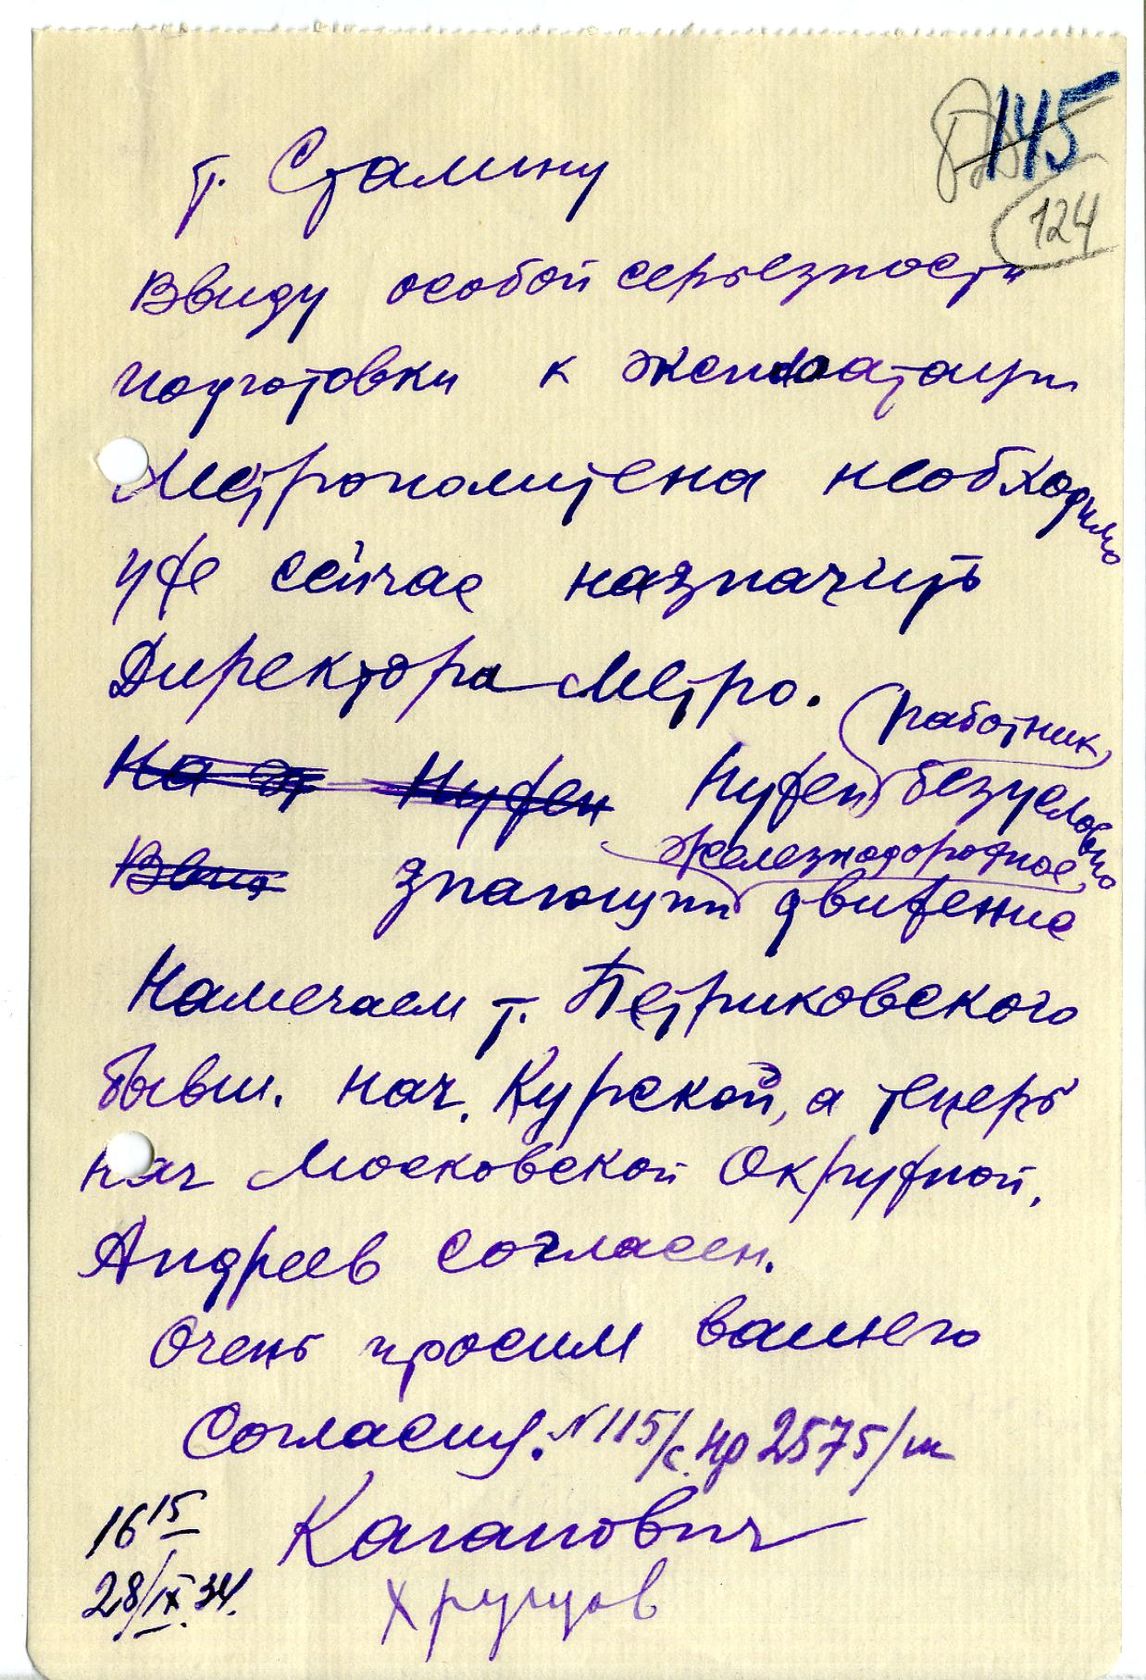 145
124
т. Сталину
Ввиду особой серьезности
подготовки к эксплоатации
Метрополитена необходимо
уже сейчас назначить
Директора Метро.
работник,
На э Нужен Нужен безусловно
Ввид железнодорожное,
знающий движение
Намечаем т. Петриковского
бывш. нач. Курской, а теперь
нач Московской Окружной.
Андреев согласен.
Очень просим вашего
согласия. N 115/с. нр 2575/ш
16 15 Каганович
28/IX.34. Хрущов